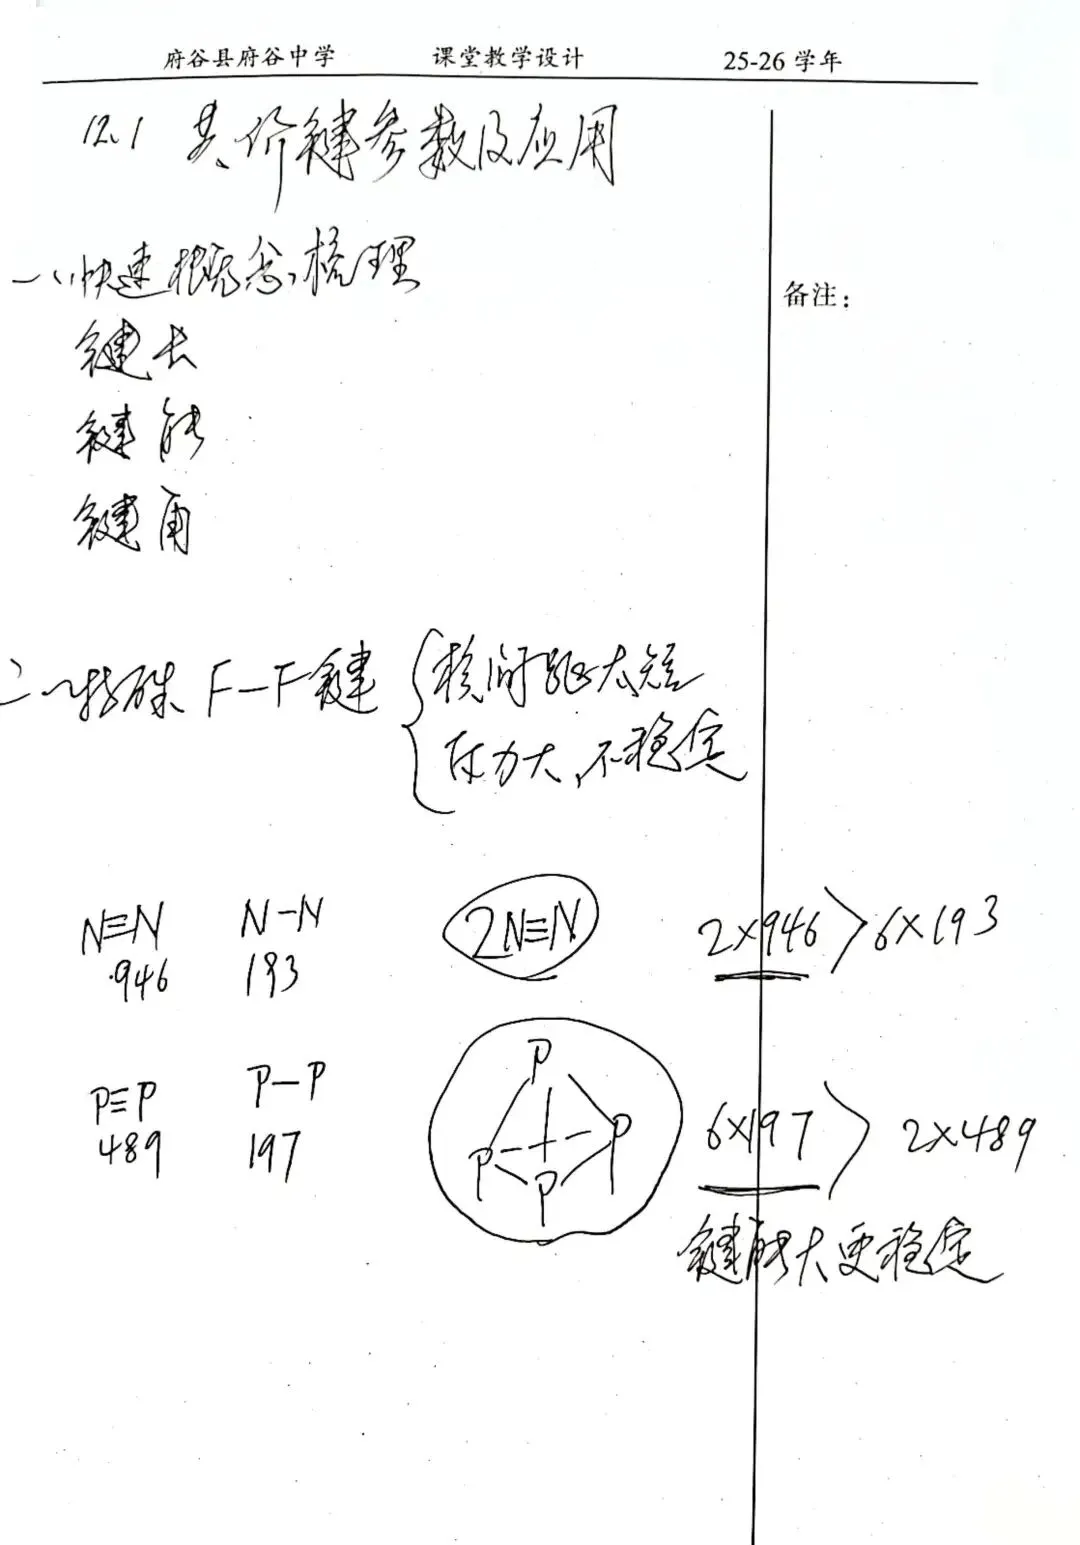 府谷县府谷中学 课堂教学设计 25-26 学年
12.1 共价键参数及应用
备注：
一、快速概念梳理
键长
键能
键角
二、特殊 F-F 键 { 核间距太短
斥力大，不稳定
N≡N N-N 2N≡N 2×946 > 6×193
946 193
P
P≡P P-P P P 6×197 > 2×489
489 197 P
键能大更稳定